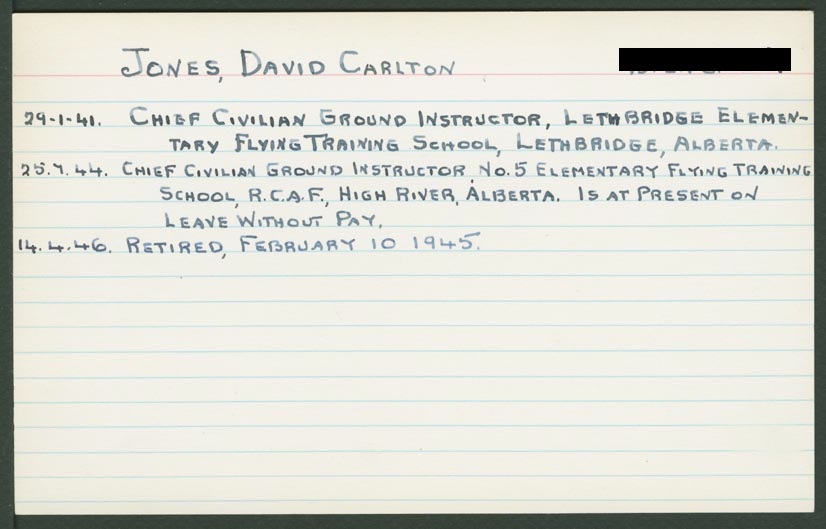 JONES, DAVID CARLTON
29-1-41. CHIEF CIVILIAN GROUND INSTRUCTOR, LETHBRIDGE ELEMEN-
TARY FLYING TRAINING SCHOOL, LETHBRIDGE, ALBERTA.
25.7.44. CHIEF CIVILIAN GROUND INSTRUCTOR, NO. 5 ELEMENTARY FLYING TRAINING
SCHOOL, R.C.A.F., HIGH RIVER, ALBERTA. IS AT PRESENT ON
LEAVE WITHOUT PAY.
14.4.46. RETIRED, FEBRUARY 10 1945.